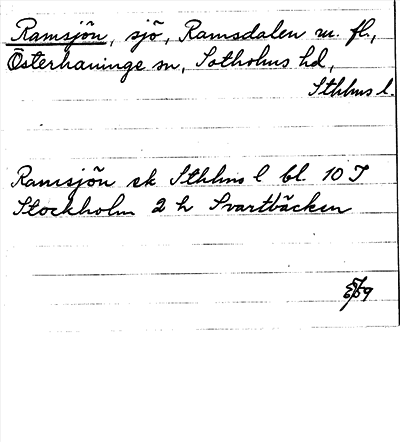 Ramsjön, sjö, Ramsdalen m. fl.,
Österhaninge sn, Sotholms hd,
Sthlms l.
Ramsjön ek Sthlms l bl. 10 I
Stockholm 2 h Svartbäcken